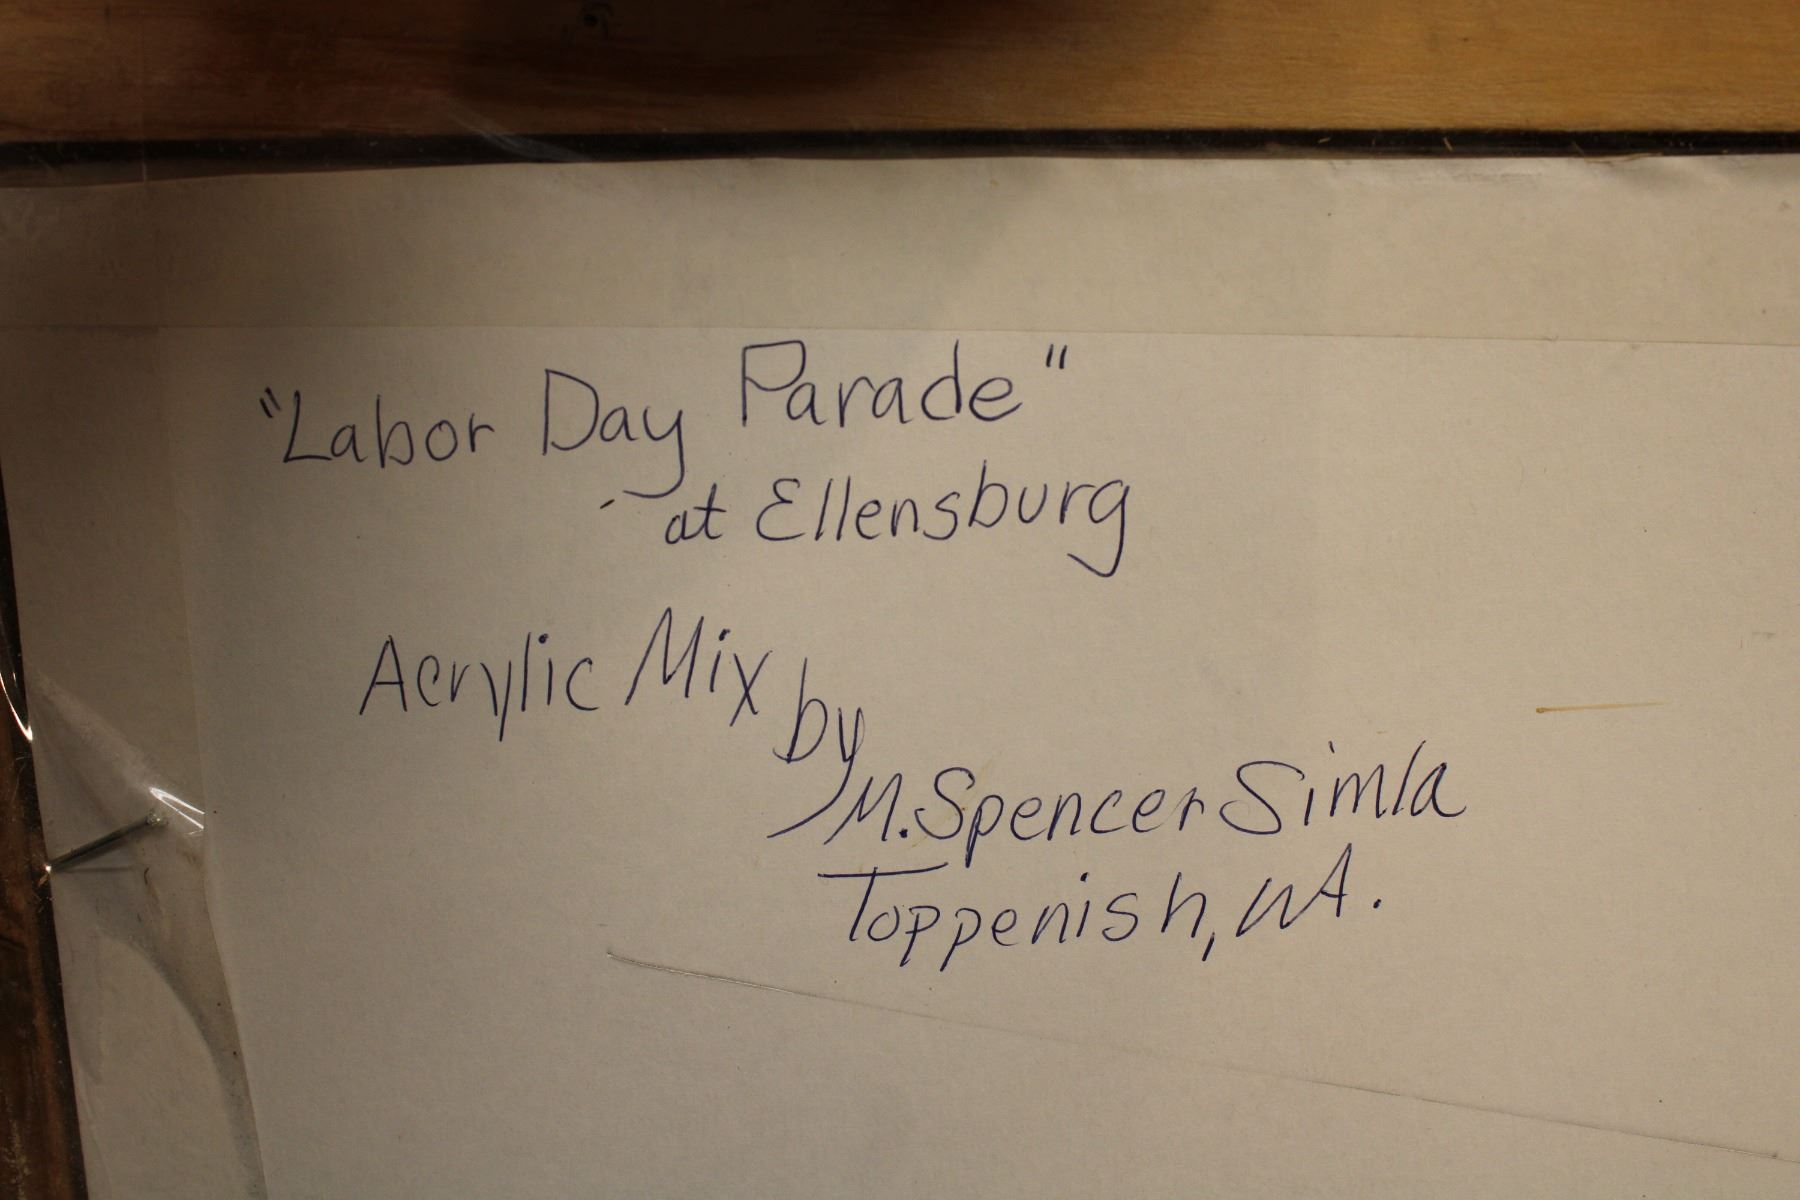 "Labor Day Parade"
at Ellensburg
Acrylic Mix by
M. Spencer Simla
Toppenish, WA.